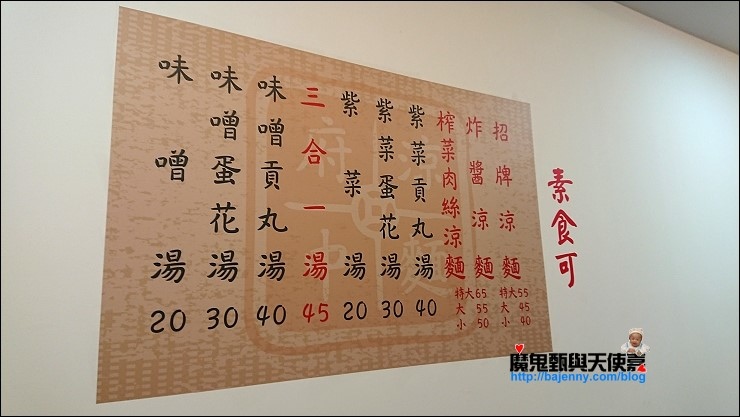 素食可
招牌涼麵
特大55
大 45
小 40
炸醬涼麵
榨菜肉絲涼麵
特大65
大 55
小 50
紫菜貢丸湯 40
紫菜蛋花湯 30
紫菜湯 20
三合一湯 45
味噌貢丸湯 40
味噌蛋花湯 30
味噌湯 20
魔鬼甄與天使嘉
http://bajenny.com/blog